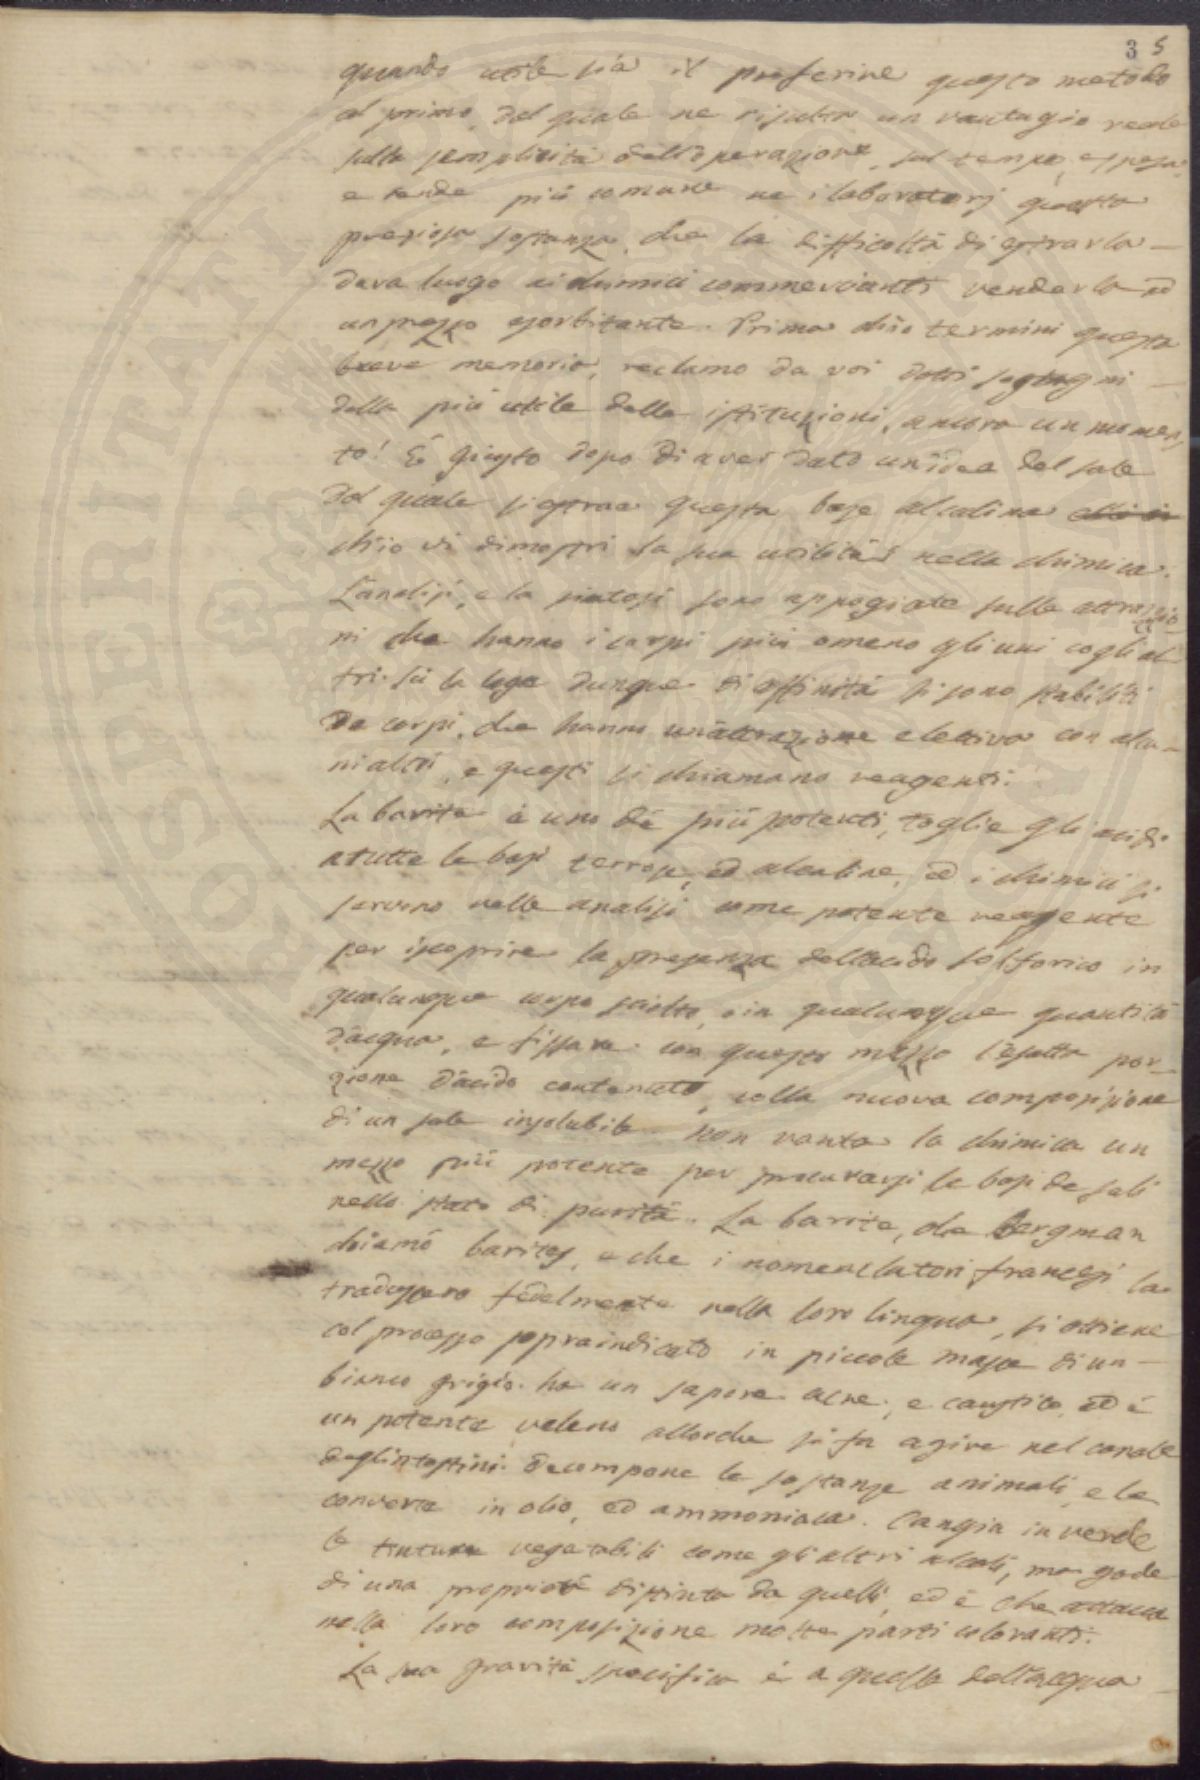 3 5
quando utile sia il preferire questo metodo
al primo, dal quale ne risulta un vantagio reale
sulla semplicità dell'operazione, sul tempo, e spesa,
e rende più comune ne i laboratorj questa
preziosa sostanza, che la difficoltà di estrarla
dava luogo ai chimici commercianti venderla ad
un prezzo esorbitante. Prima ch'io termini questa
breve memoria, reclamo da voi dotti sostegni
della più utile delle istituzioni, ancora un momen,
to! È giusto dopo di aver dato un'idea del sale
dal quale si estrae questa base alcalina
ch'io vi dimostri la sua utilità nella chimica.
L'analisi, e la sintesi sono appogiate sulle attrazio
ni che hanno i corpi più o meno gli uni cogli al
tri. Sù la legge dunque di affinità si sono stabiliti
De corpi, che hanno un'attrazione elettiva con alcu-
ni altri, e questi si chiamano reagenti.
La barite è uno de più potenti, toglie gli acidi
a tutte le basi terrose, ed alcaline, ed i chimici si
servono nelle analisi come potente reagente
per iscoprire la presenza dell'acido solforico in
qualunque corpo sciolto, o in qualunque quantità
d'acqua, e fissare con questo mezzo l'esatta por-
zione d'acido contenuto, colla nuova composizione
di un sale insolubile. Non vanta la chimica un
mezzo più potente per procurarsi le basi de sali
nello stato di purità. La barite, che Bergman
chiamò barites, e che i nomenclatori francesi la
tradussero fedelmente nella loro lingua, si ottiene
col processo sopraindicato in piccole masse di un
bianco grigio. ha un sapore acre, e caustico, ed è
un potente veleno allorche si fa agire nel canale
degl'intestini. Decompone le sostanze animali, e le
converte in olio, ed ammoniaca. Cangia in verde
le tinture vegetabili come gli altri alcali, ma gode
di una proprietà distinta da quelli, ed è che attacca
nella loro composizione molte parti coloranti.
La sua gravità specifica è a quella dell'acqua